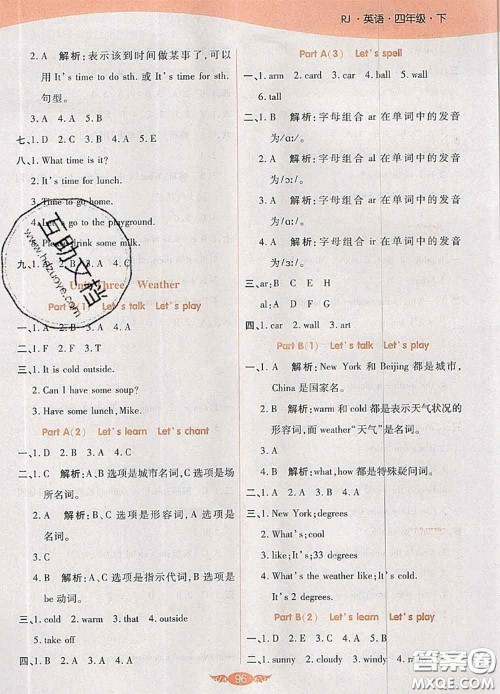 RJ·英语·四年级·下
2. A 解析:表示该到时间做某事了,可以
用 It's time to do sth. 或 It's time for sth.
句型。
3. A 4. C 5. B
七、1. D 2. E 3. B 4. A 5. C
八、1. What time is it?
2. It's time for lunch.
3. Time to go home.
4. Let's go to the playground.
5. Please drink some milk.
九、1. 2. B 3. A 4. A
Unit Three Weather
Part A(1) Let's talk Let's play
一、1. A 2. B 3. B 4. A
二、1. F 2. F 3. T
三、1. It is cold outside.
2. Can I have some soup?
3. Have some lunch, Mike.
Part A(2) Let's learn Let's chant
一、1. D 2. A 3. B 4. C
二、1. C 解析:A、B 选项是城市名词,C 选项是场
所名词。
2. A 解析:B、C 选项是形容词,A 选项是
名词。
3. C
4. B 解析:A、C 选项是指示代词,B 选项是
be 动词。
三、1. cold 2. warm 3. that 4. outside
5. take off
四、1. B 2. A 3. D 4. C
Part A(3) Let's spell
一、1. arm 2. card 3. car 4. ball 5. wall
6. tall
二、1. A 解析:字母组合 ar 在单词中的发音
为/ɑː/。
2. A 解析:字母组合 ar 在单词中的发音
为/ɑː/。
3. A 解析:字母组合 al 在单词中的发音
为/ɔː/。
4. A 解析:字母组合 ir 在单词中的发音
三、ar: B E G H
al: A C D F
四、1. car 2. ball 3. wall 4. art
Part B(1) Let's talk Let's play
一、1. A 解析:New York 和 Beijing 都是城市,
China 是国家名。
2. B 解析:warm 和 cold 都是表示天气状况的
形容词,而 weather“天气”是名词。
3. B 解析:what, how 都是特殊疑问词。
二、1. D 2. A 3. B 4. C
三、1. New York; degrees
2. What's; cool
3. like; It's; 33 degrees
4. What's the weather like; It's cold;
It's 2 degrees.
四、1. B 2. A 3. D 4. C
Part B(2) Let's learn Let's play
一、1. sunny 2. cloudy 3. windy 4. rainy
互助文档
www.hdzuoye.com
96
答案圈
MXQE.COM